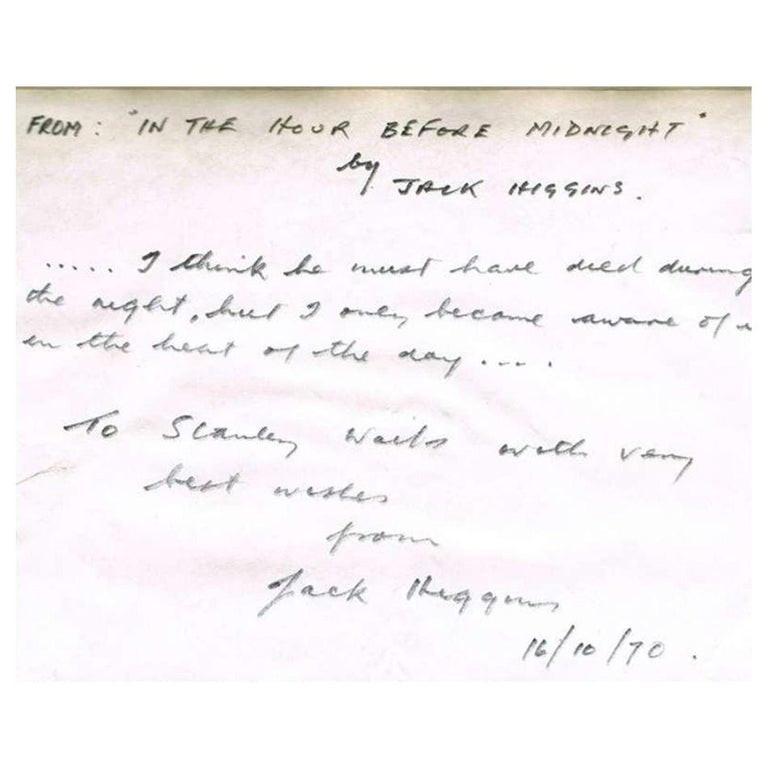 FROM: "IN THE HOUR BEFORE MIDNIGHT"
by
JACK HIGGINS.
..... I think he must have died during
the night, but I only became aware of
in the heat of the day ....
To Stanley with very
best wishes
from
Jack Higgins
16/10/70.